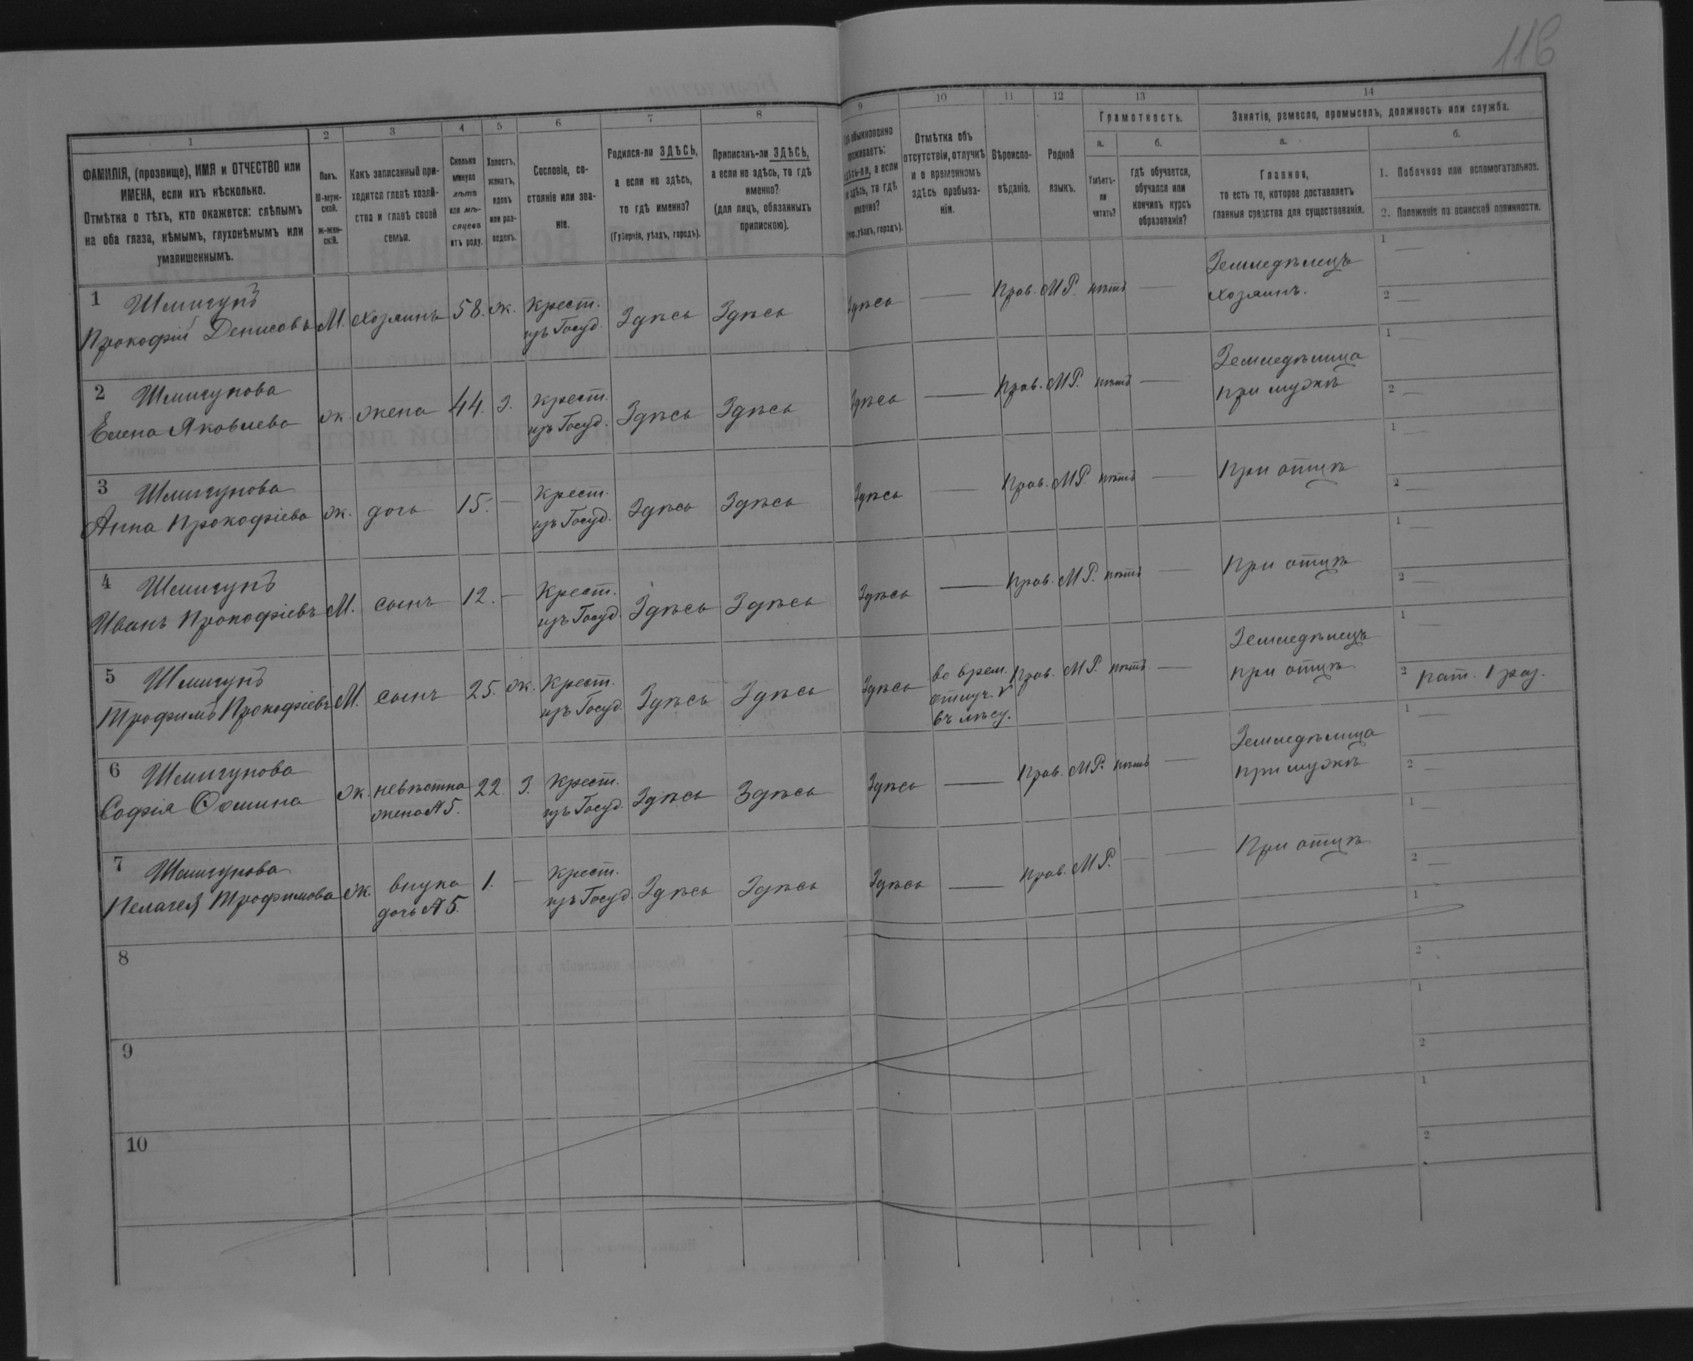 116
1 2 3 4 5 6 7 8 9 10 11 12 13 14
ФАМИЛІЯ, (прозвище), ИМЯ и ОТЧЕСТВО или
ИМЕНА, если ихъ нѣсколько.
Отмѣтка о тѣхъ, кто окажется: слѣпымъ
на оба глаза, нѣмымъ, глухонѣмымъ или
умалишеннымъ.
Полъ.
М-муж-
ской.
Ж-жен-
скій.
Какъ записанный при-
ходится главѣ хозяй-
ства и главѣ своей
семьи.
Сколько
минуло
лѣтъ
или мѣ-
сяцевъ
отъ роду.
Холостъ,
женатъ,
вдовъ
или раз-
веденъ.
Сословіе, со-
стояніе или зва-
ніе.
Родился-ли ЗДѢСЬ,
а если не здѣсь,
то гдѣ именно?
(Губернія, уѣздъ, городъ).
Приписанъ-ли ЗДѢСЬ,
а если не здѣсь, то гдѣ
именно?
(для лицъ, обязанныхъ
припискою).
обыкновенно
проживаетъ:
здѣсь-ли, а если
не здѣсь, то гдѣ
именно?
уѣздъ, городъ).
Отмѣтка объ
отсутствіи, отлучкѣ
и о временномъ
здѣсь пребыва-
ніи.
Вѣроиспо-
вѣданіе.
Родной
языкъ.
Грамотность.
а.
Умѣетъ-
ли
читать?
б.
гдѣ обучается,
обучался или
кончилъ курсъ
образованія?
Занятіе, ремесло, промыселъ, должность или служба.
а.
Главное,
то есть то, которое доставляетъ
главныя средства для существованія.
б.
1. Побочное или вспомогательное.
2. Положеніе по воинской повинности.
1 Шмигунъ
Прокофій Денисовъ М. хозяинъ 58. ж. Крест.
изъ Госуд. Здѣсь Здѣсь Здѣсь — Прав. М.Р. нѣтъ — Земледѣлецъ
хозяинъ. 1 — 2 —
2 Шмигунова
Елена Яковлева ж. жена 44. з. Крест.
изъ Госуд. Здѣсь Здѣсь Здѣсь — Прав. М.Р. нѣтъ — Земледѣлица
при мужѣ 1 — 2 —
3 Шмигунова
Анна Прокофіева ж. дочь 15. — Крест.
изъ Госуд. Здѣсь Здѣсь Здѣсь — Прав. М.Р. нѣтъ — При отцѣ 1 — 2 —
4 Шмигунъ
Иванъ Прокофіевъ М. сынъ 12. — Крест.
изъ Госуд. Здѣсь Здѣсь Здѣсь — Прав. М.Р. нѣтъ — При отцѣ 1 — 2 —
5 Шмигунъ
Трофимъ Прокофіевъ М. сынъ 25. ж. Крест.
изъ Госуд. Здѣсь Здѣсь Здѣсь во врем.
отлуч.
въ лѣсу. Прав. М.Р. нѣтъ — Земледѣлецъ
при отцѣ 1 — 2 рат. 1 раз.
6 Шмигунова
Софія Фомина ж. невѣстка
жена №5. 22 з. Крест.
изъ Госуд. Здѣсь Здѣсь Здѣсь — Прав. М.Р. нѣтъ — Земледѣлица
при мужѣ 1 — 2 —
7 Шмигунова
Пелагея Трофимова ж. внука
дочь №5. 1. — Крест.
изъ Госуд. Здѣсь Здѣсь Здѣсь — Прав. М.Р. — — При отцѣ 1 — 2 —
8 1 2
9 1 2
10 1 2